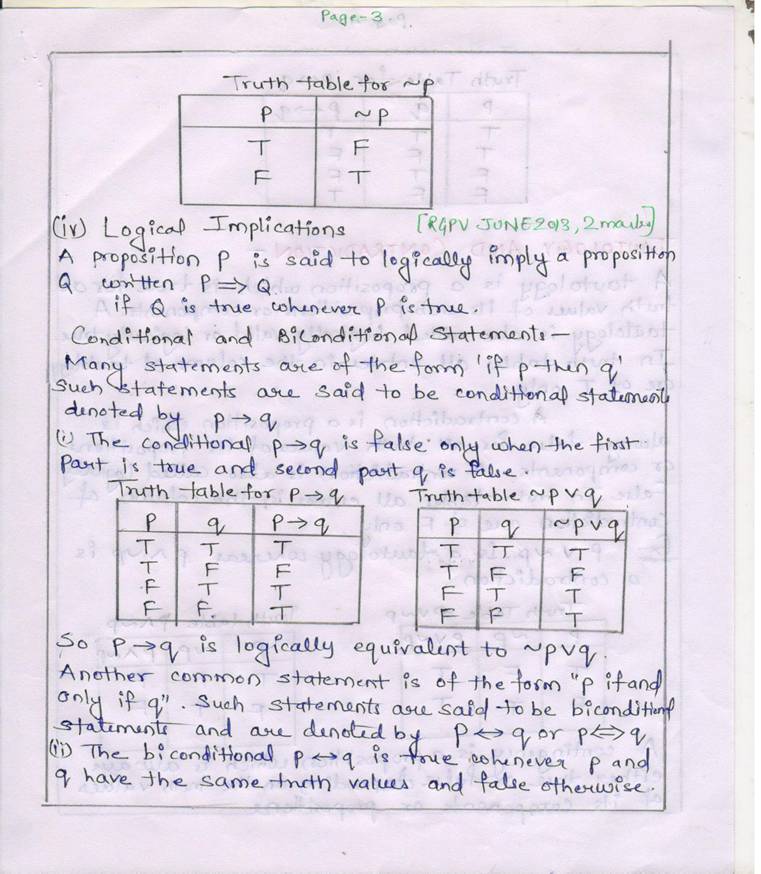 Page-3
Truth table for ~p
P ~p
T F
F T
(iv) Logical Implications [RGPV JUNE 2013, 2 marks]
A proposition P is said to logically imply a proposition
Q written P => Q.
if Q is true whenever P is true.
Conditional and Biconditional Statements—
Many statements are of the form 'if p then q'
Such statements are said to be conditional statements
denoted by p→q
(i) The conditional p→q is false only when the first
part is true and second part q is false.
Truth table for p→q
P q p→q
T T T
T F F
F T T
F F T
Truth table ~p∨q
P q ~p∨q
T T T
T F F
F T T
F F T
So p→q is logically equivalent to ~p∨q.
Another common statement is of the form "p if and
only if q". Such statements are said to be biconditional
statements and are denoted by p↔q or p⇔q
(ii) The biconditional p↔q is true whenever p and
q have the same truth values and false otherwise.